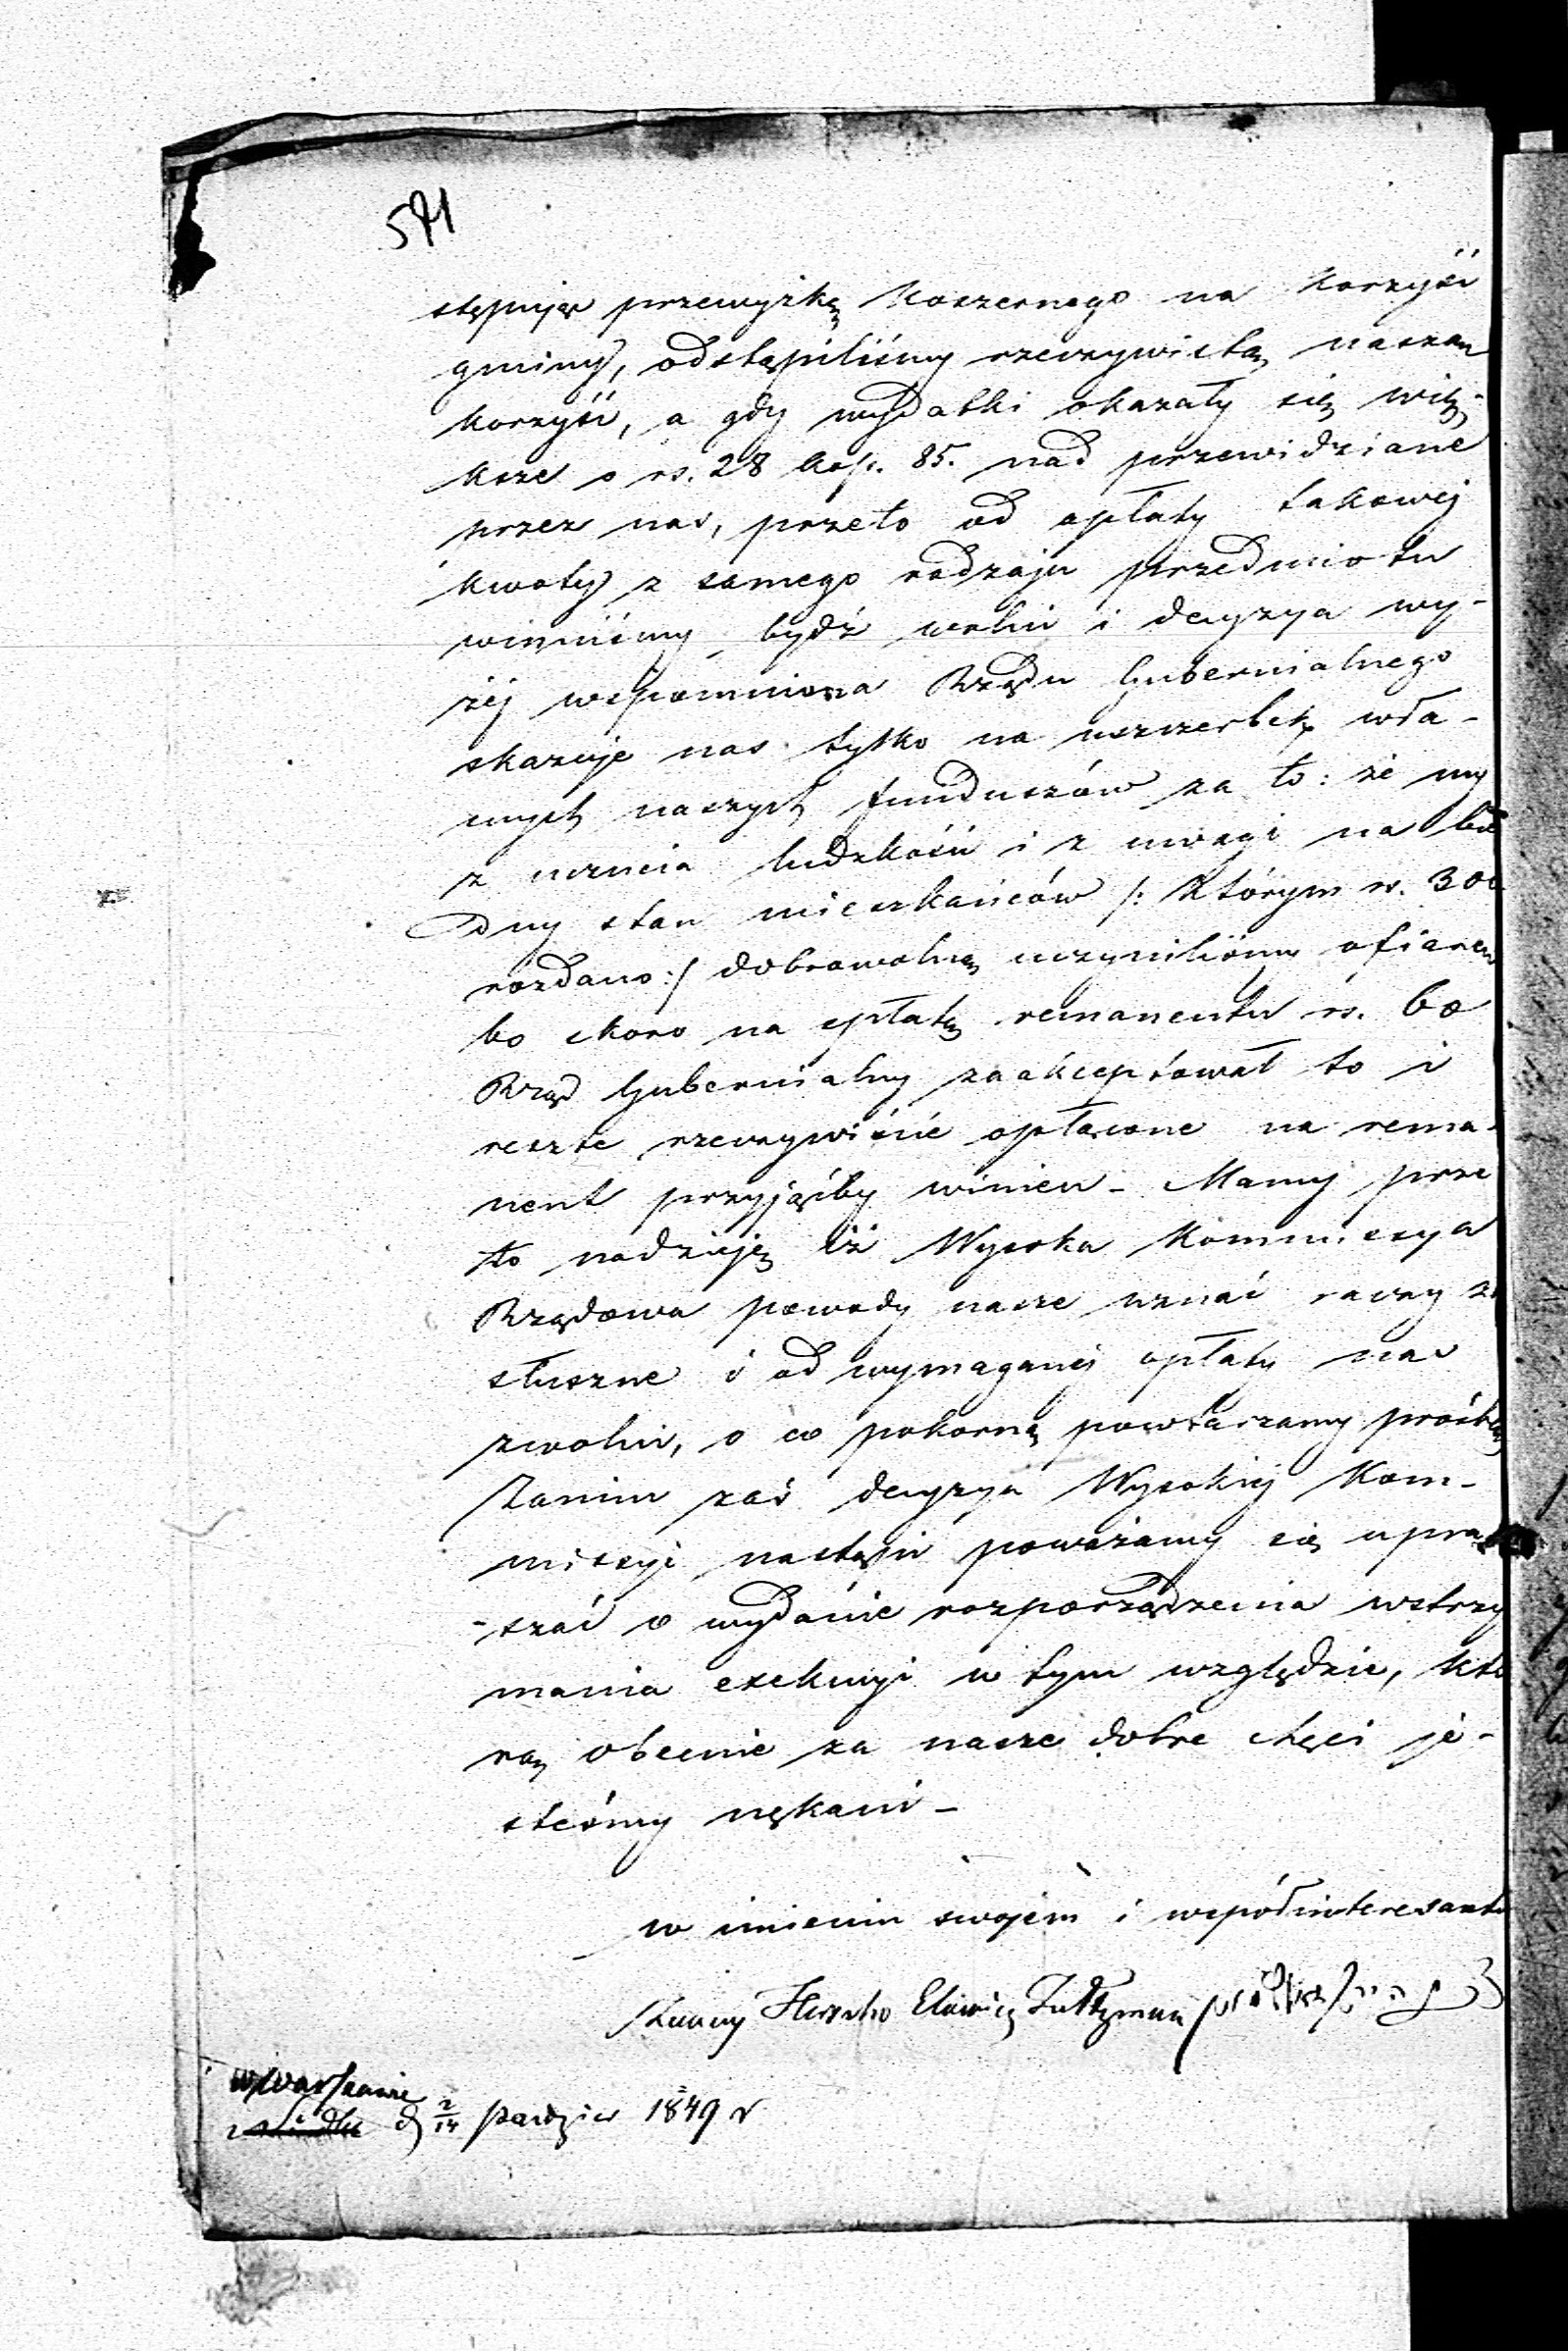 571
stępując przewyżkę koszernego na korzyść
gminy, odstąpiliśmy rzeczywistą naszą
korzyść, a gdy wydatki okazały się wię-
ksze o rs. 28 kop. 85. nad przewidziane
przez nas, przeto od opłaty takowej
kwoty z samego rodzaju przedmiotu
winniśmy bydź wolni i decyzya wy-
żéj wspomniona Rządu Gubernialnego
skazuje nas tylko na uszczerbek wła-
snych naszych funduszów za to: że my
z uczucia ludzkości i z uwagi na bié
dny stan mieszkańców /: którym rs. 300
rozdano :/ dobrowolną uczyniliśmy ofiarę
bo skoro na opłatę remanentu rs. 60
Rząd Gubernialny zaakceptował to i
resztę rzeczywiście opłacone na rema-
nent przyjąćby winien – Mamy prze
to nadzieję iż Wysoka Kommissya
Rządowa powody nasze uznać raczy za
słuszne i od wymaganéj opłaty nas
zwolni, o co pokorną powtarzamy prośbę
Zanim zaś decyzya Wysokiéj Kom-
missyi nastąpi poważamy się upra-
-szać o wydanie rozporządzenia wstrzy
mania exekucyi w tym względzie, któ
rą obecnie za nasze dobre chęci je-
steśmy nękani –
w imieniu swojém i współinteresantó
Hersko
w Warszawie
d 2/14 Paździer 1849 r